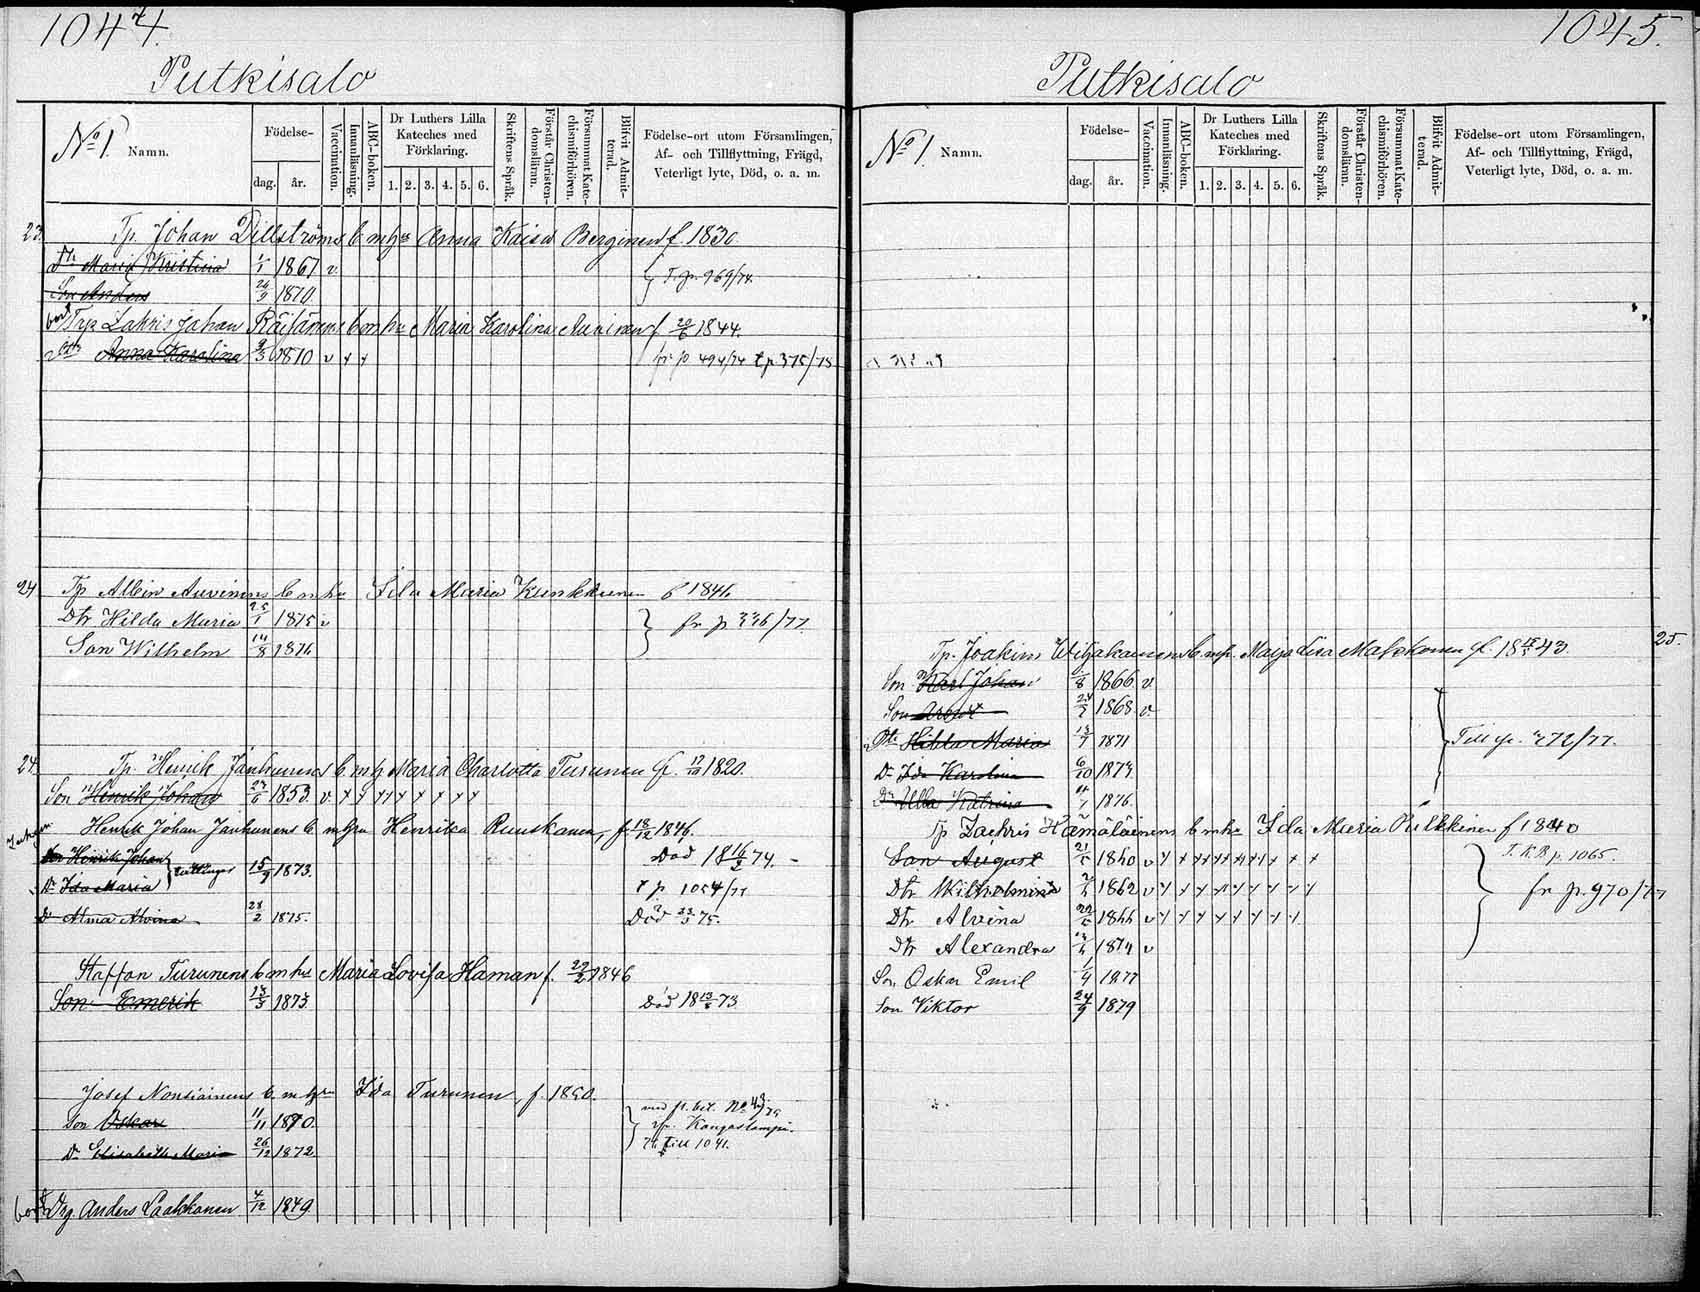 1044.
Putkisalo
No 1. Namn.
Födelse-
dag. år.
Vaccination.
Innanläsning.
ABC-boken.
Dr Luthers Lilla
Kateches med
Förklaring.
1. 2. 3. 4. 5. 6.
Skriftens Språk.
Förstår Christen-
domsläran.
Försummat Kate-
chismiförhören.
Blifvit Admit-
terad.
Födelse-ort utom Församlingen,
Af- och Tillflyttning, Frägd,
Veterligt lyte, Död, o. a. m.
23. Tp. Johan Dillströms b. m hu Anna Kaisa Berginen f. 1830
Dr Maria Kristina 1/1 1867 v. T. p. 969/74.
Son Anders 1870.
bort Johan Räisänens b m hu Maria Karolina Auvinen f 20/6 1844.
Anna Karolina 1870 v x x fr p 494/74 t p 375/75
24 Tp Albin Auvinens b m hu Ida Maria Kunkkunen f 1846
Dtr Hilda Maria 25/1 1875 v fr p 336/77
Son Wilhelm 14/8 1876
24. Tp. Henrik Janhunens b. m h Maria Charlotta Turunen f. 12/10 1820.
Son Henrik Johan 27/6 1853. v. x x x x x x x x x
Henrik Johan Janhunens b m hu Henrika Ruuskanen, f 18/12 1846.
Son Henrik Johan 15/9 1873. Död 18 16/2 74. -
Dr Ida Maria tvillingar t p 1054/77
Dr Alma Alvina 28/2 1875. Död 23/3 75.
Staffan Turunens b m hu Maria Lovisa Haman f. 29/2 1846
Son Emerik 13/3 1873. Död 18 13/8 73.
Josef Nousiainens b. m hu Ida Turunen, f. 1850.
Son Oskar 11/11 1870. med fl. bet. No 43/79
Dr Elisabeth Maria 26/12 1872. Kangaslampi.
till 1041.
bort Drg. Anders Laakkonen 4/12 1849
1045.
Putkisalo
No 1. Namn.
Födelse-
dag. år.
Vaccination.
Innanläsning.
ABC-boken.
Dr Luthers Lilla
Kateches med
Förklaring.
1. 2. 3. 4. 5. 6.
Skriftens Språk.
Förstår Christen-
domsläran.
Försummat Kate-
chismiförhören.
Blifvit Admit-
terad.
Födelse-ort utom Församlingen,
Af- och Tillflyttning, Frägd,
Veterligt lyte, Död, o. a. m.
Tp. Joakim Wiljakainens b. m h. Maija Lisa Makkonen f. 18 43. 25.
Son Karl Johan 1866 v
Son 1868 v.
Dtr Hilda Maria 13/7 1871 Till p. 272/77.
Dr Ida Karolina 6/10 1873.
Dr Ulla Katrina 1876.
Tp Zachris Hämäläinens b m hu Ida Maria Pulkkinen f 1840
Son August 21/5 1860 v x x x x x x x x x x T. K. B. p. 1065.
Dtr Wilhelmina 1862 v x x x x x x x x x fr p. 970/77
Dtr Alvina 20/5 1866 v x x x x x x x x
Dtr Alexandra 1874 v
Son Oskar Emil 1/9 1877
Son Viktor 24/9 1879